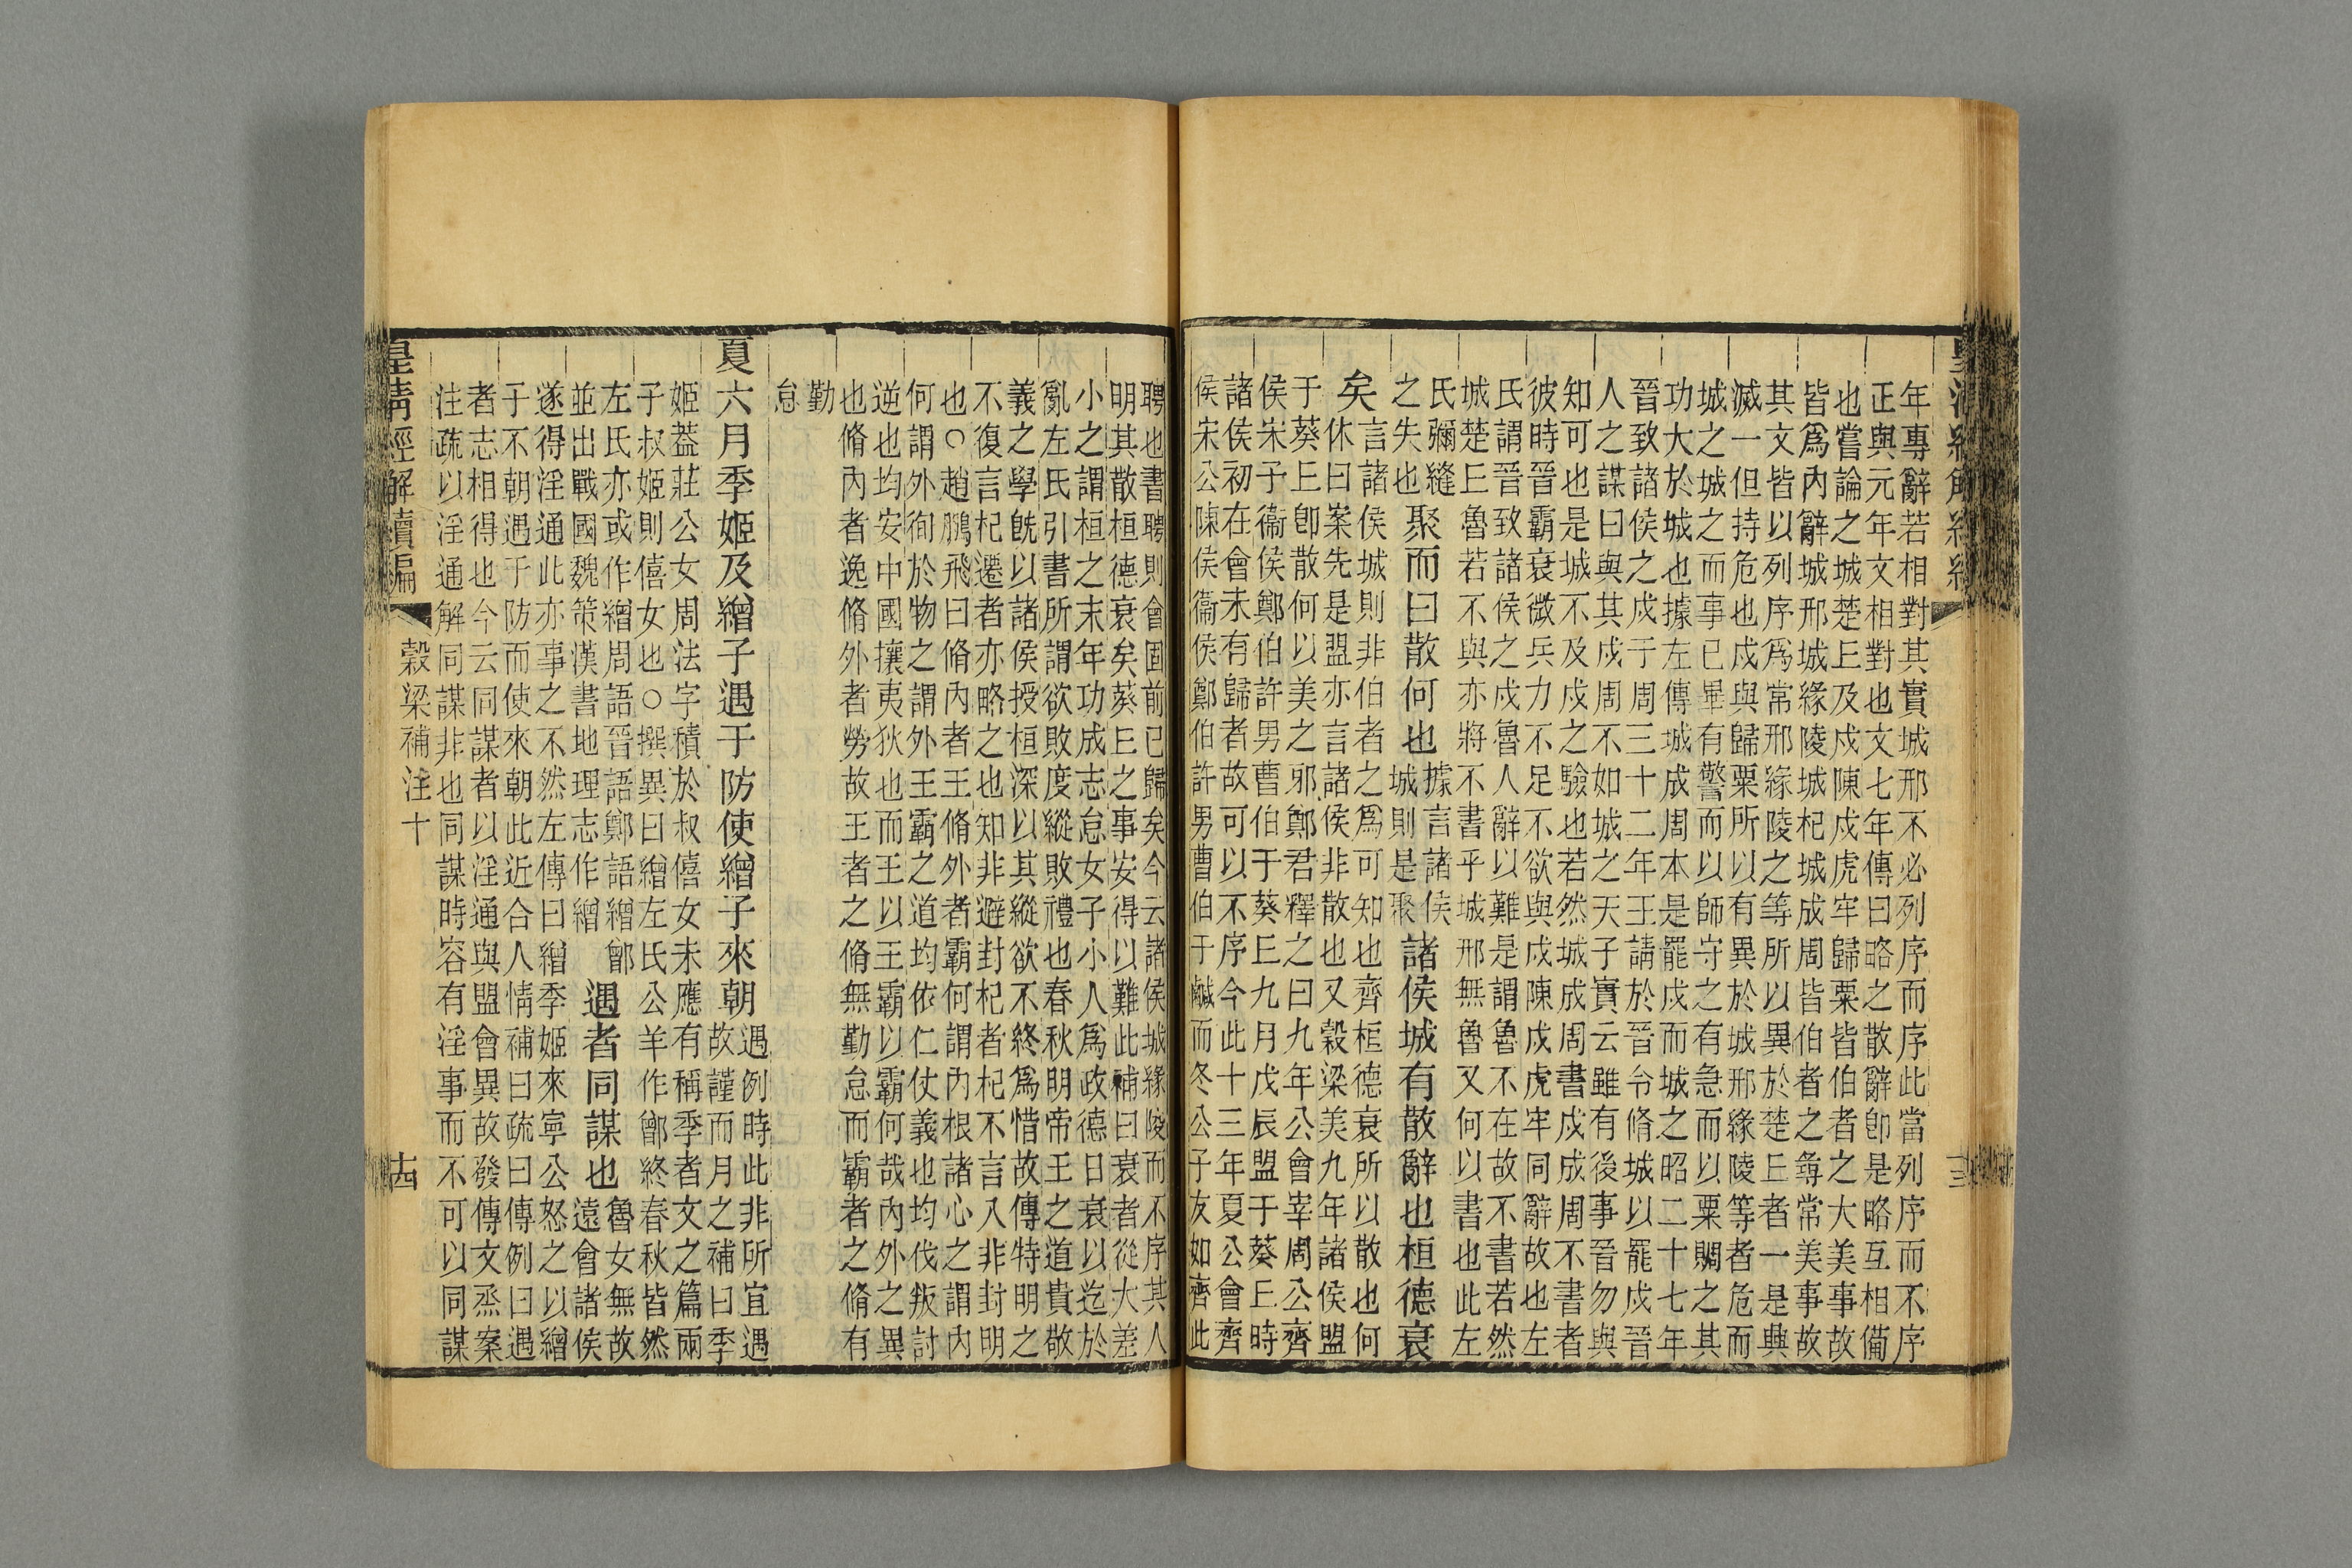 年專辭若相對其實城邢不必列序而序此當列序而不序
正與元年文相對也文七年傳曰略之散辭卽是略互相備
也嘗論之城楚丘及戍陳戍虎牢歸粟皆伯者之大美事故
皆爲內辭城邢城緣陵城杞城成周皆伯者之尋常美事故
其文皆以列序爲常邢緣陵之等所以異於楚丘者一是興
滅一但持危也戍與歸粟所以有異於城邢緣陵等者危而
城之城之而事已畢有警而以師守之有急而以粟賙之其
功大於城也據左傳城成周本是罷戍而城之昭二十七年
晉致諸侯之戍于周三十二年王請於晉令脩城以罷戍晉
人之謀曰與其戍周不如城之天子實云雖有後事晉勿與
知可也是城不及戍之驗也若然城成周書戍成周不書者
彼時晉霸衰微兵力不足不欲與戍陳戍虎牢同辭故也左
氏謂晉致諸侯之戍魯人辭以難是謂魯不在故不書若然
城楚丘魯若不與亦將不書乎城邢無魯又何以書也此左
氏彌縫
之失也
聚而曰散何也
據言諸侯
城則是聚
諸侯城有散辭也桓德衰
矣
言諸侯城則非伯者之爲可知也齊桓德衰所以散也何
休曰案先是盟亦言諸侯非散也又穀梁美九年諸侯盟
于葵丘卽散何以美之邪鄭君釋之曰九年公會宰周公齊
侯宋子衞侯鄭伯許男曹伯于葵丘九月戊辰盟于葵丘時
諸侯初在會未有歸者故可以不序今此十三年夏公會齊
侯宋公陳侯衞侯鄭伯許男曹伯于鹹而冬公子友如齊此
聘也書聘則會固前已歸矣今云諸侯城緣陵而不序其人
明其散桓德衰矣葵丘之事安得以難此補曰衰者從大差
小之謂桓之末年功成志怠女子小人爲政德日衰以迄於
亂左氏引書所謂欲敗度縱敗禮也春秋明帝王之道貴敬
義之學旣以諸侯授桓深以其縱欲不終爲惜故傳特明之
不復言杞遷者亦略之也知非避封杞者杞不言入非封明
也○趙鵬飛曰脩內者王脩外者霸何謂內根諸心之謂內
何謂外徇於物之謂外王霸之道均依仁仗義也均伐叛討
逆也均安中國攘夷狄也而王以王霸以霸何哉內外之異
也脩內者逸脩外者勞故王者之脩無勤怠而霸者之脩有
勤
怠
夏六月季姬及繒子遇于防使繒子來朝
遇例時此非所宜遇
故謹而月之補曰季
姬葢莊公女周法字積於叔僖女未應有稱季者文之篇兩
子叔姬則僖女也○撰異曰繒左氏公羊作鄫終春秋皆然
左氏亦或作繒周語晉語鄭語繒鄫
並出戰國魏策漢書地理志作繒
遇者同謀也
魯女無故
遠會諸侯
遂得淫通此亦事之不然左傳曰繒季姬來寧公怒之以繒
于不朝遇于防而使來朝此近合人情補曰疏曰傳例曰遇
者志相得也今云同謀者以淫通與盟會異故發傳文烝案
注疏以淫通解同謀非也同謀時容有淫事而不可以同謀
皇清經解續編
穀梁補注十
十四